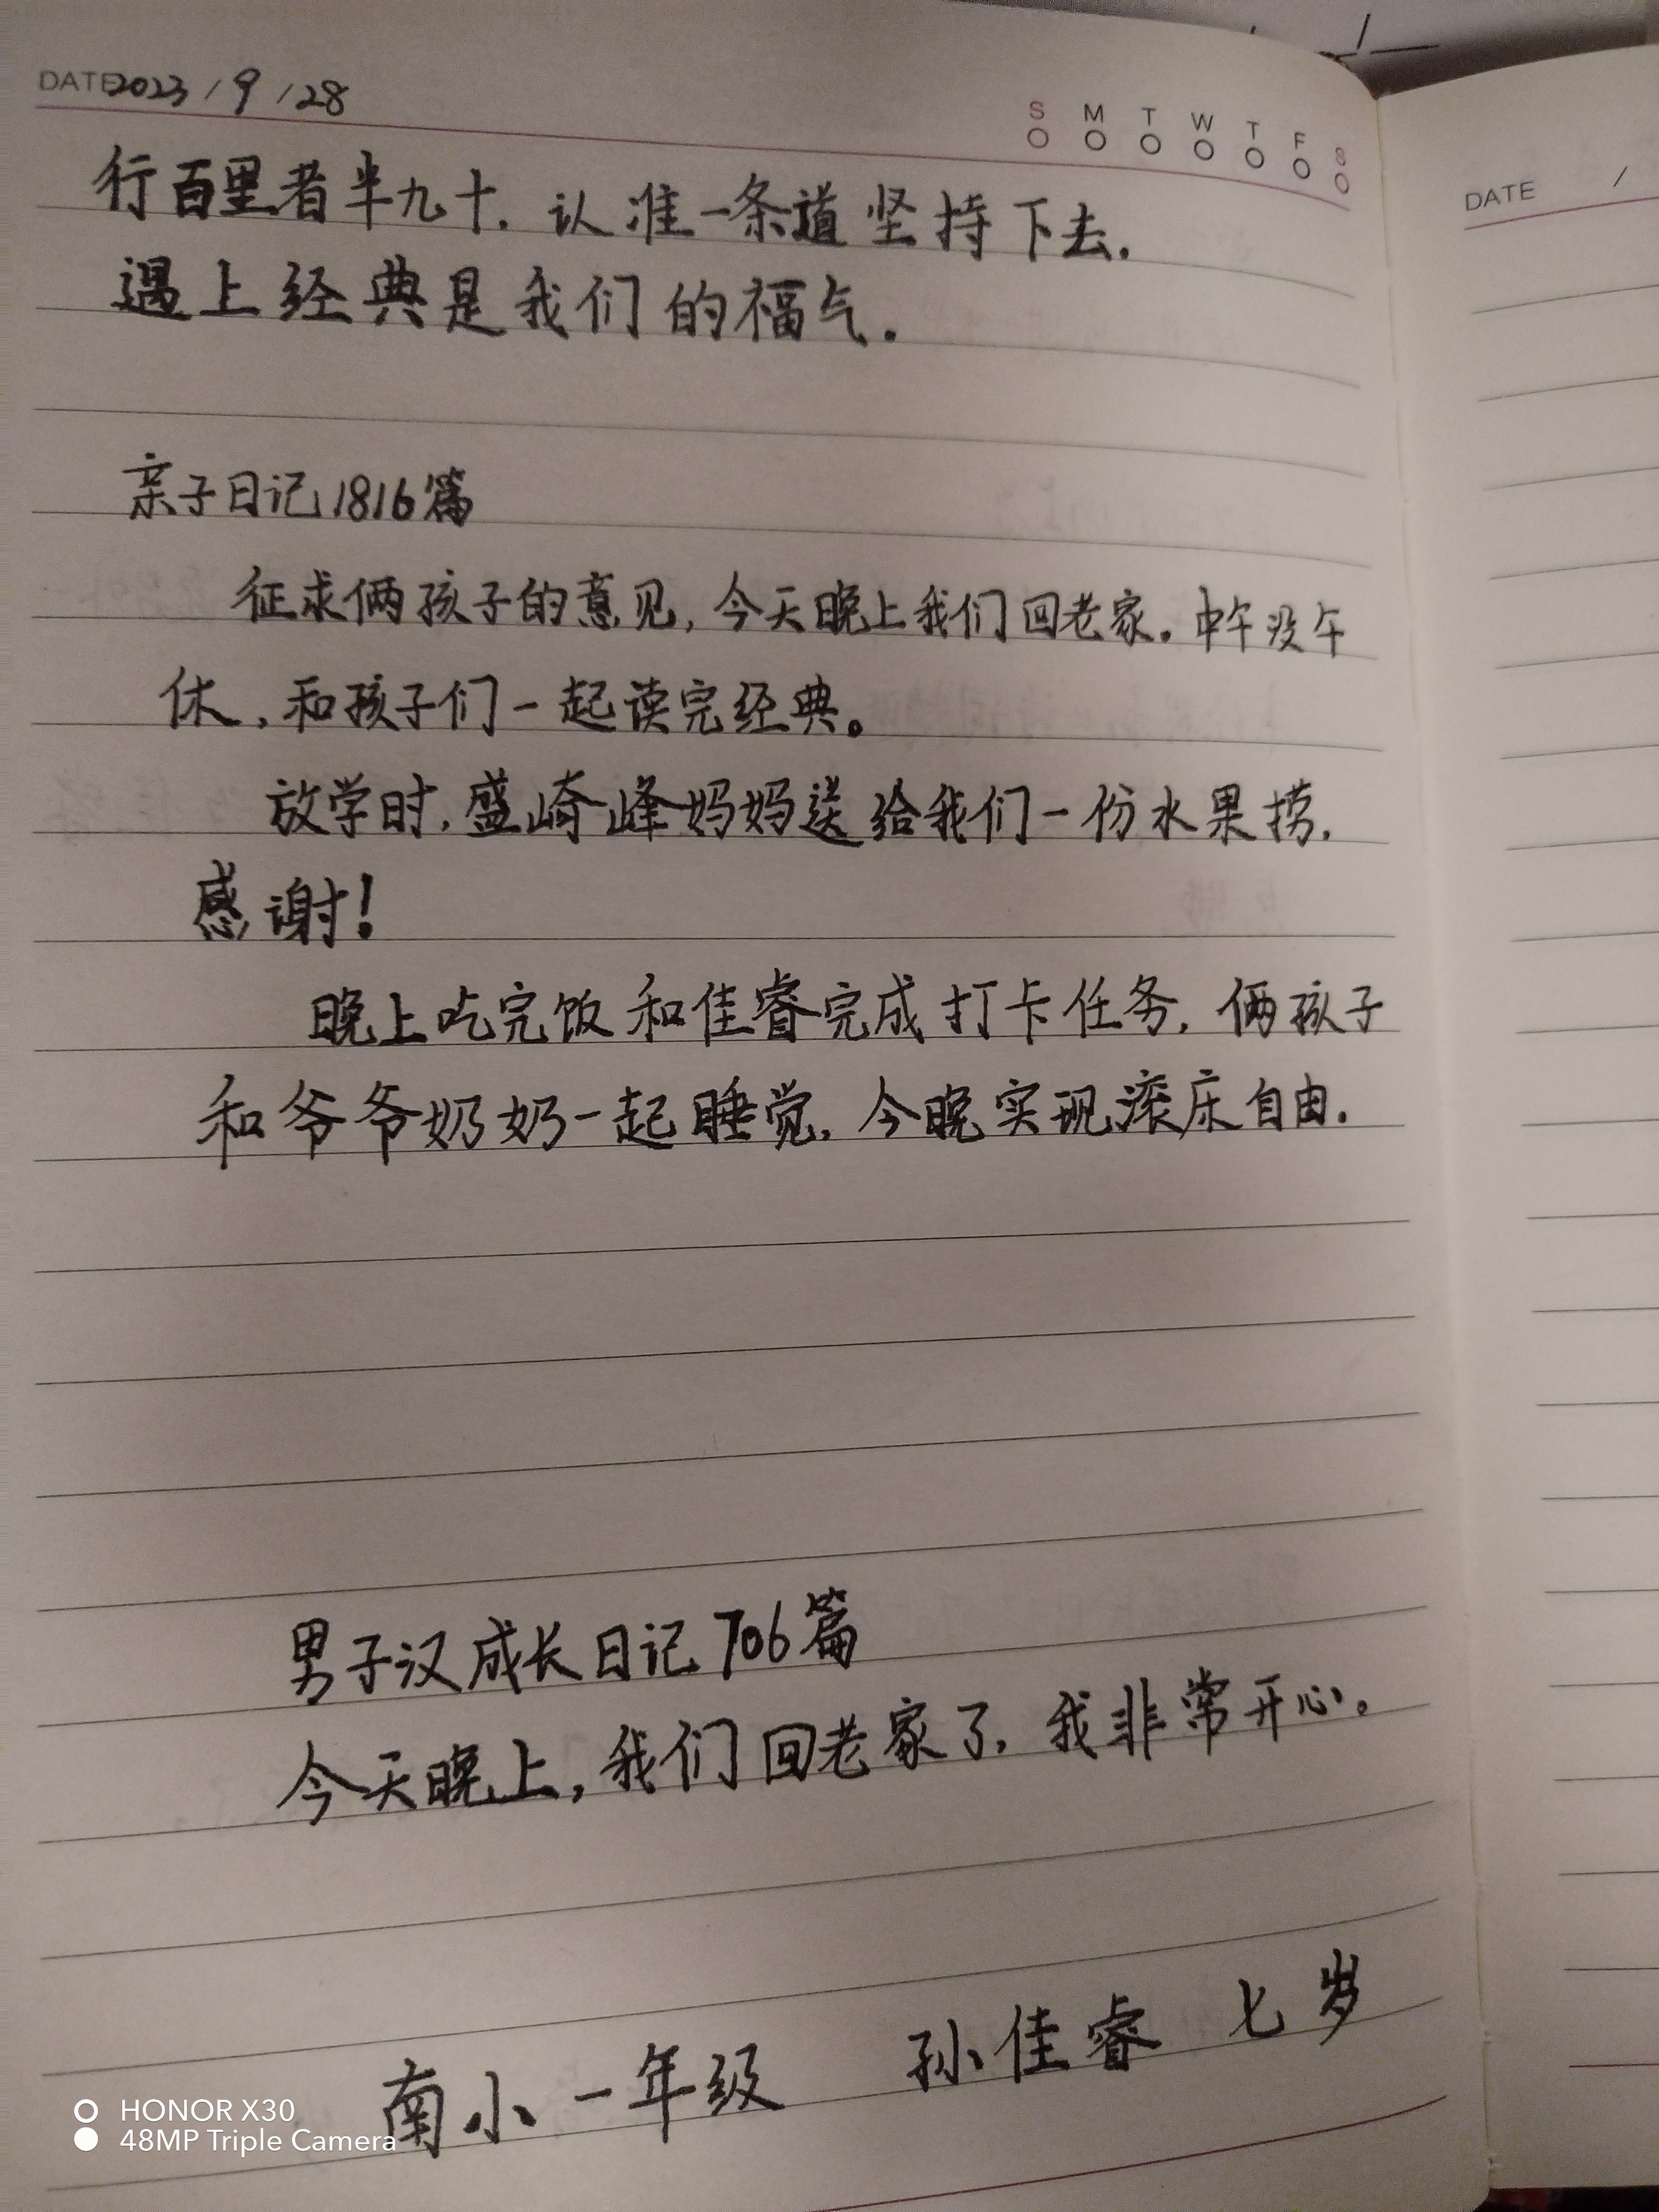 DATE 2023 / 9 / 28
S M T W T F S
行百里者半九十. 认准一条道坚持下去.
遇上经典是我们的福气.
亲子日记1816篇
征求俩孩子的意见, 今天晚上我们回老家. 中午没午
休, 和孩子们一起读完经典。
放学时, 盛崎峰妈妈送给我们一份水果捞.
感谢!
晚上吃完饭和佳睿完成打卡任务, 俩孩子
和爷爷奶奶一起睡觉, 今晚实现滚床自由.
男子汉成长日记706篇
今天晚上, 我们回老家了, 我非常开心。
南小一年级 孙佳睿 七岁
DATE /
HONOR X30
48MP Triple Camera